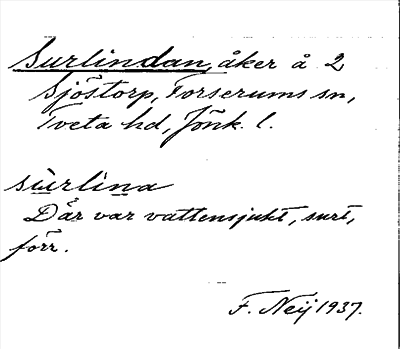 Surlindan, åker å 2
Sjöstorp, Forserums sn,
Tveta hd, Jönk. l.
sùrlìna
Där var vattensjukt, surt,
förr.
F. Neij 1937.